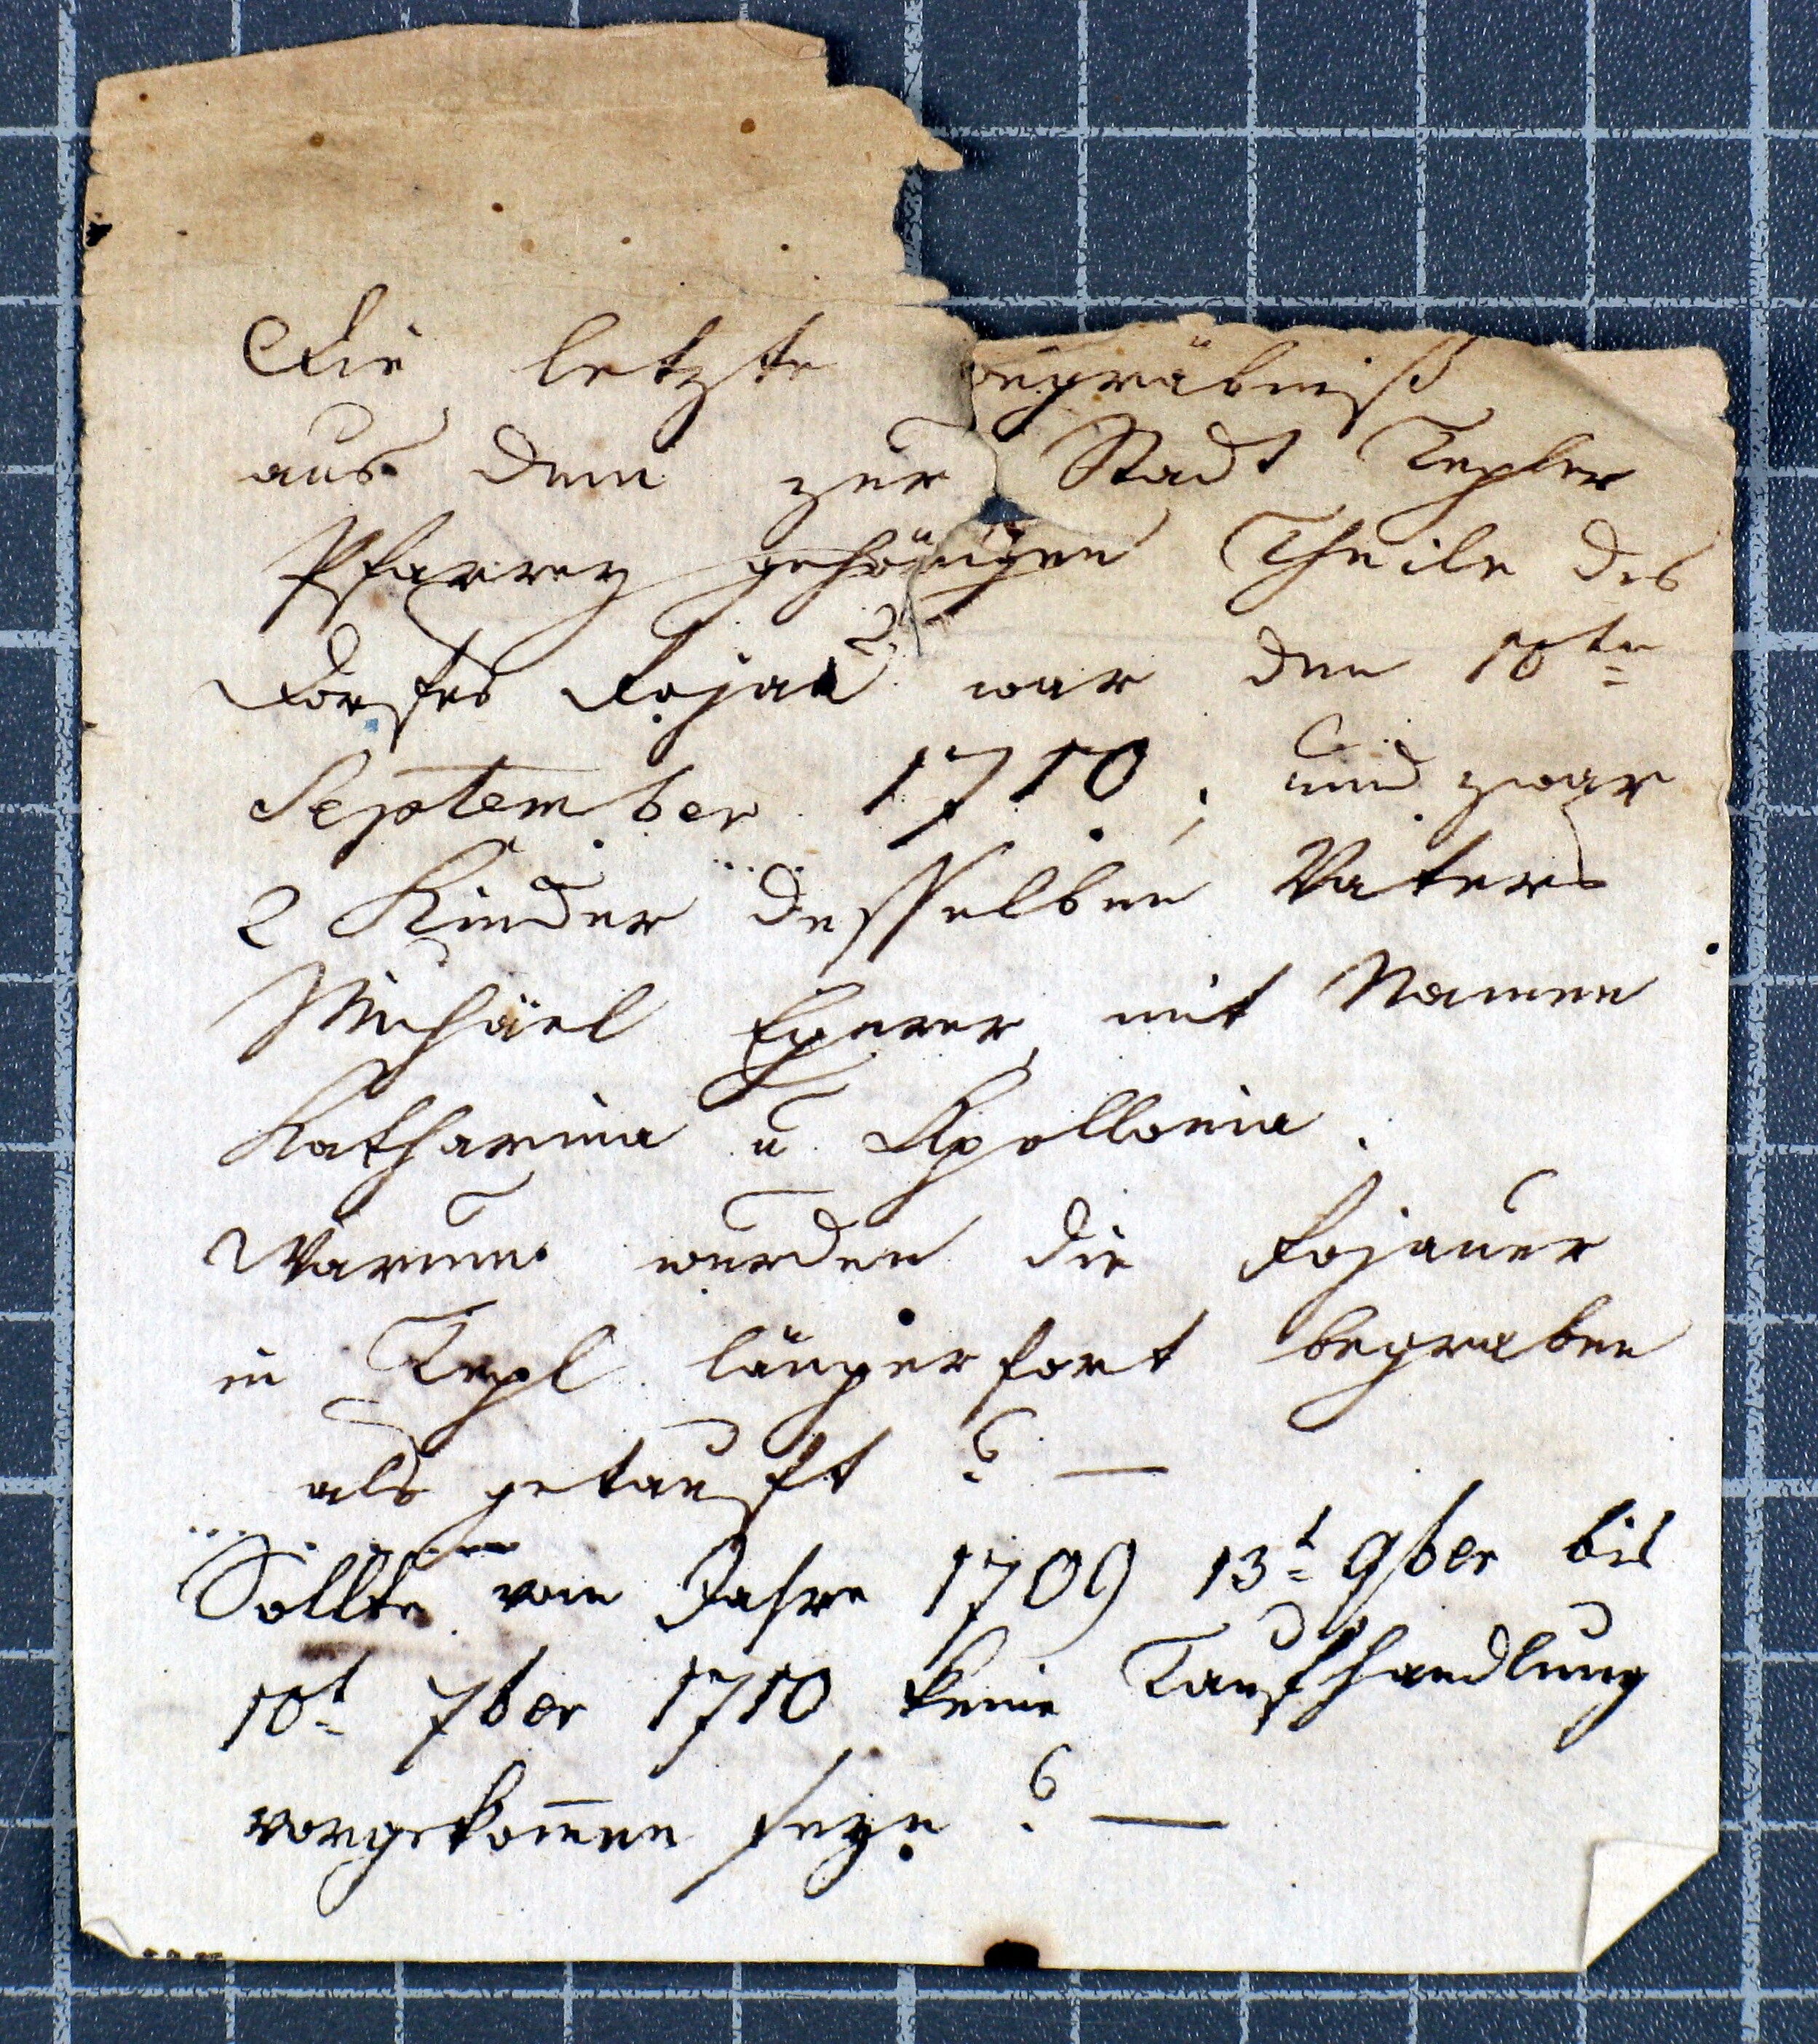 Die letzte Begräbniß
aus dem zur Stadt Tepler
Pfarrey gehörigen Theile des
Dorfes Rojau war den 10ten
September 1710; und zwar
2 Kinder desselben Vaters
Michäel Egerer, mit Namen
Katharina u Apollonia.
Warum wurden die Rojauer
in Tepl länger fort begraben
als getauft? —
Sollte vom Jahre 1709 13t 9ber bis
10t 7ber 1710 keine Taufhandlung
vorgekom̅en seyn? —